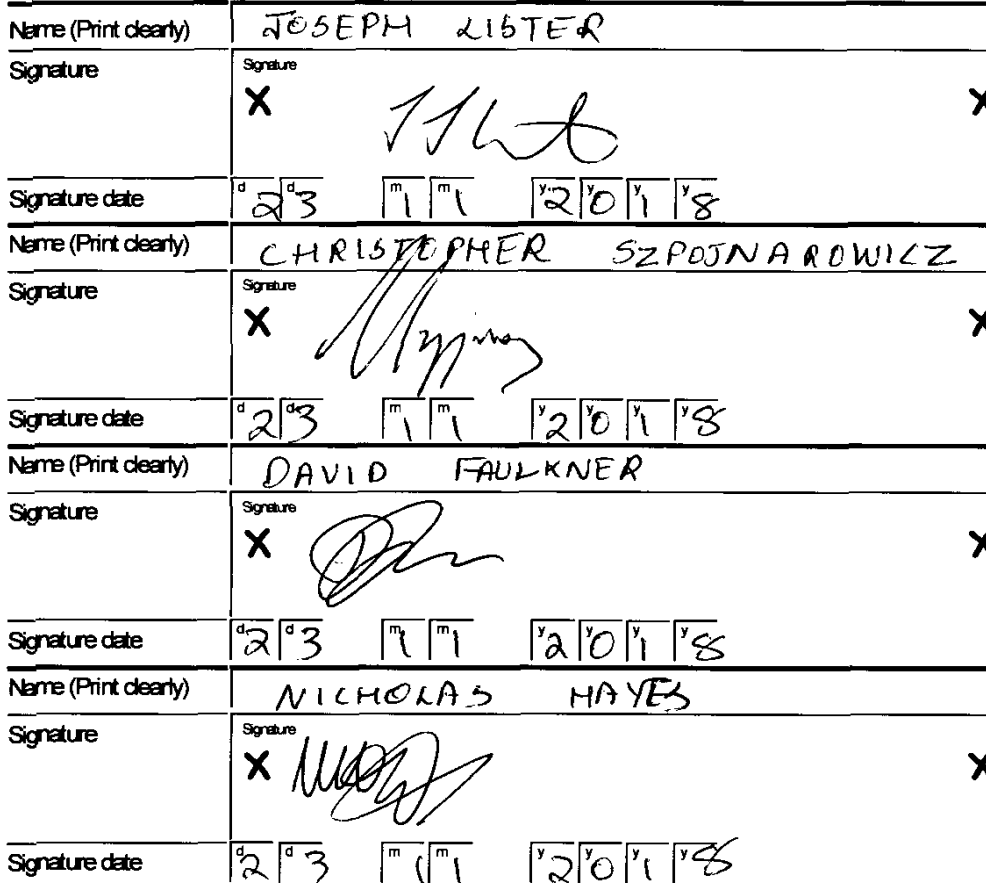 Name (Print clearly) JOSEPH LISTER
Signature Signature
X X
Signature date d2 d3 m1 m1 y2 y0 y1 y8
Name (Print clearly) CHRISTOPHER SZPOJNAROWICZ
Signature Signature
X X
Signature date d2 d3 m1 m1 y2 y0 y1 y8
Name (Print clearly) DAVID FAULKNER
Signature Signature
X X
Signature date d2 d3 m1 m1 y2 y0 y1 y8
Name (Print clearly) NICHOLAS HAYES
Signature Signature
X X
Signature date d2 d3 m1 m1 y2 y0 y1 y8